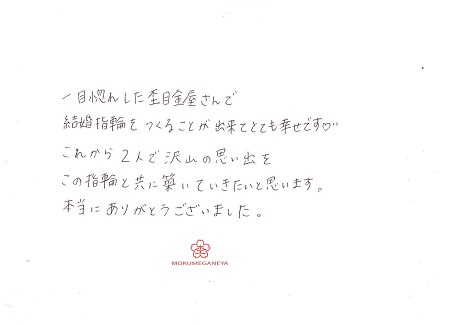 一目惚れした杢目金屋さんで
結婚指輪をつくることが出来てとても幸せです♡
これから2人で沢山の思い出を
この指輪と共に築いていきたいと思います。
本当にありがとうございました。
MOKUMEGANEYA